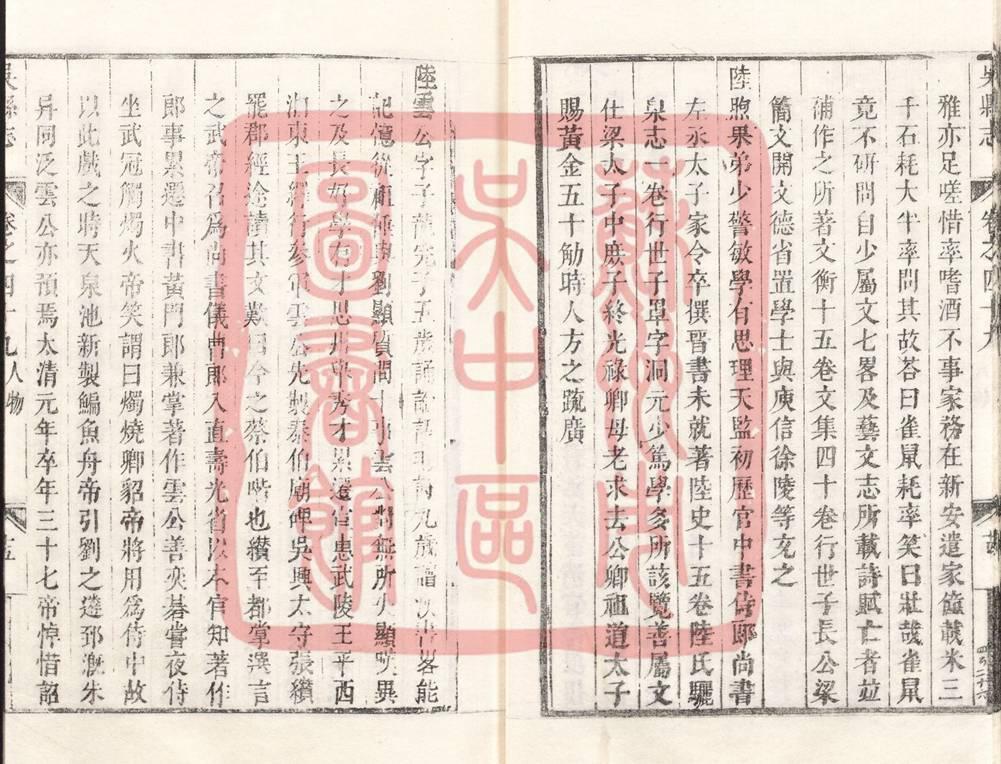 雅亦足嗟惜率嗜酒不事家務在新安遣家僮載米三
千石耗大半率問其故荅曰雀鼠耗率笑曰壯哉雀鼠
竟不研問自少屬文七畧及藝文志所載詩賦亡者並
補作之所著文衡十五卷文集四十卷行世子長公梁
簡文開文德省置學士與庾信徐陵等充之
陸煦杲弟少警敏學有思理天監初歷官中書侍郎尚書
左丞太子家令卒撰晉書未就著陸史十五卷陸氏驪
泉志一卷行世子罩字洞元少篤學多所該覽善屬文
仕梁太子中庶子終光祿卿母老求去公卿祖道太子
賜黃金五十觔時人方之疏廣
陸雲公字子龍完子五歲誦論語毛詩九歲讀漢書畧能
記憶從祖倕與劉顯質問十事雲公對無所失顯嘆異
之及長好學有才思州舉秀才累遷宣惠武陵王平西
湘東王繹行參軍雲公先製泰伯廟碑吳興太守張纘
罷郡經途讀其文歎曰今之蔡伯喈也纘至都掌選言
之武帝召爲尚書儀曹郎入直壽光省以本官知著作
郎事累遷中書黃門郎兼掌著作雲公善奕碁嘗夜侍
坐武冠觸燭火帝笑謂曰燭燒卿貂帝將用爲侍中故
以此戲之時天泉池新製鯿魚舟帝引劉之遴到漑朱
异同泛雲公亦預焉太清元年卒年三十七帝悼惜詔
吳縣志
卷之四十九人物
五
蘇州市吳中區圖書館